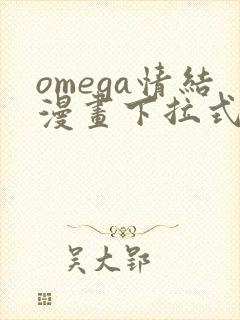 omega情結
漫畫下拉式
吴大郢